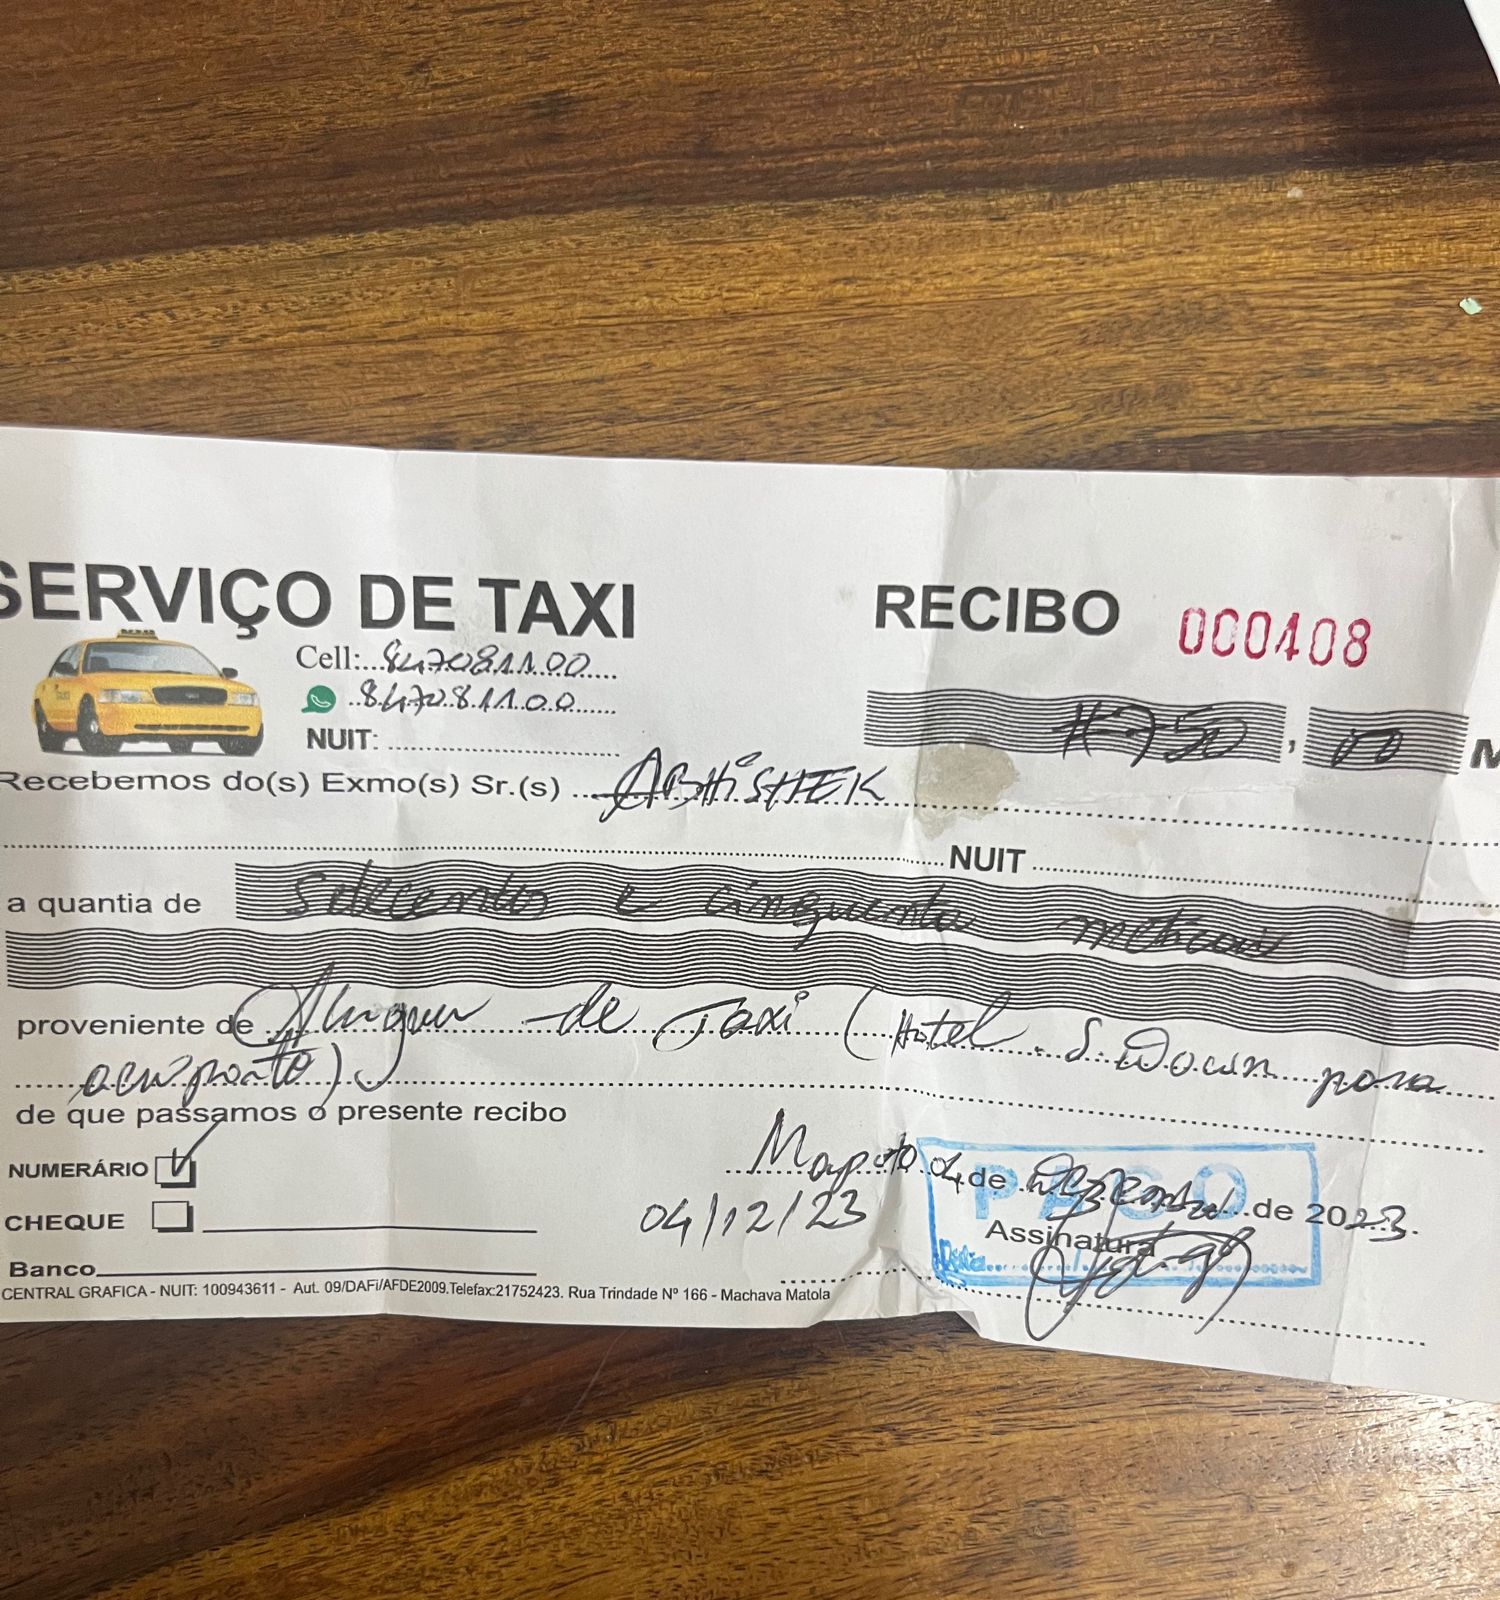 SERVIÇO DE TAXI
RECIBO 000408
Cell: 847081100
847081100
NUIT:
#750,00 M
Recebemos do(s) Exmo(s) Sr.(s) ABHISHEK
NUIT
a quantia de Setecentos e cinquenta meticais
proveniente de Aluguer de Taxi (Hotel S. Down para
aeroporto)
de que passamos o presente recibo
NUMERÁRIO
CHEQUE
Banco
Maputo 04 de Dezembro de 2023.
04/12/23
PAGO
Assinatura
Data
CENTRAL GRAFICA - NUIT: 100943611 - Aut. 09/DAFi/AFDE2009.Telefax:21752423. Rua Trindade Nº 166 - Machava Matola